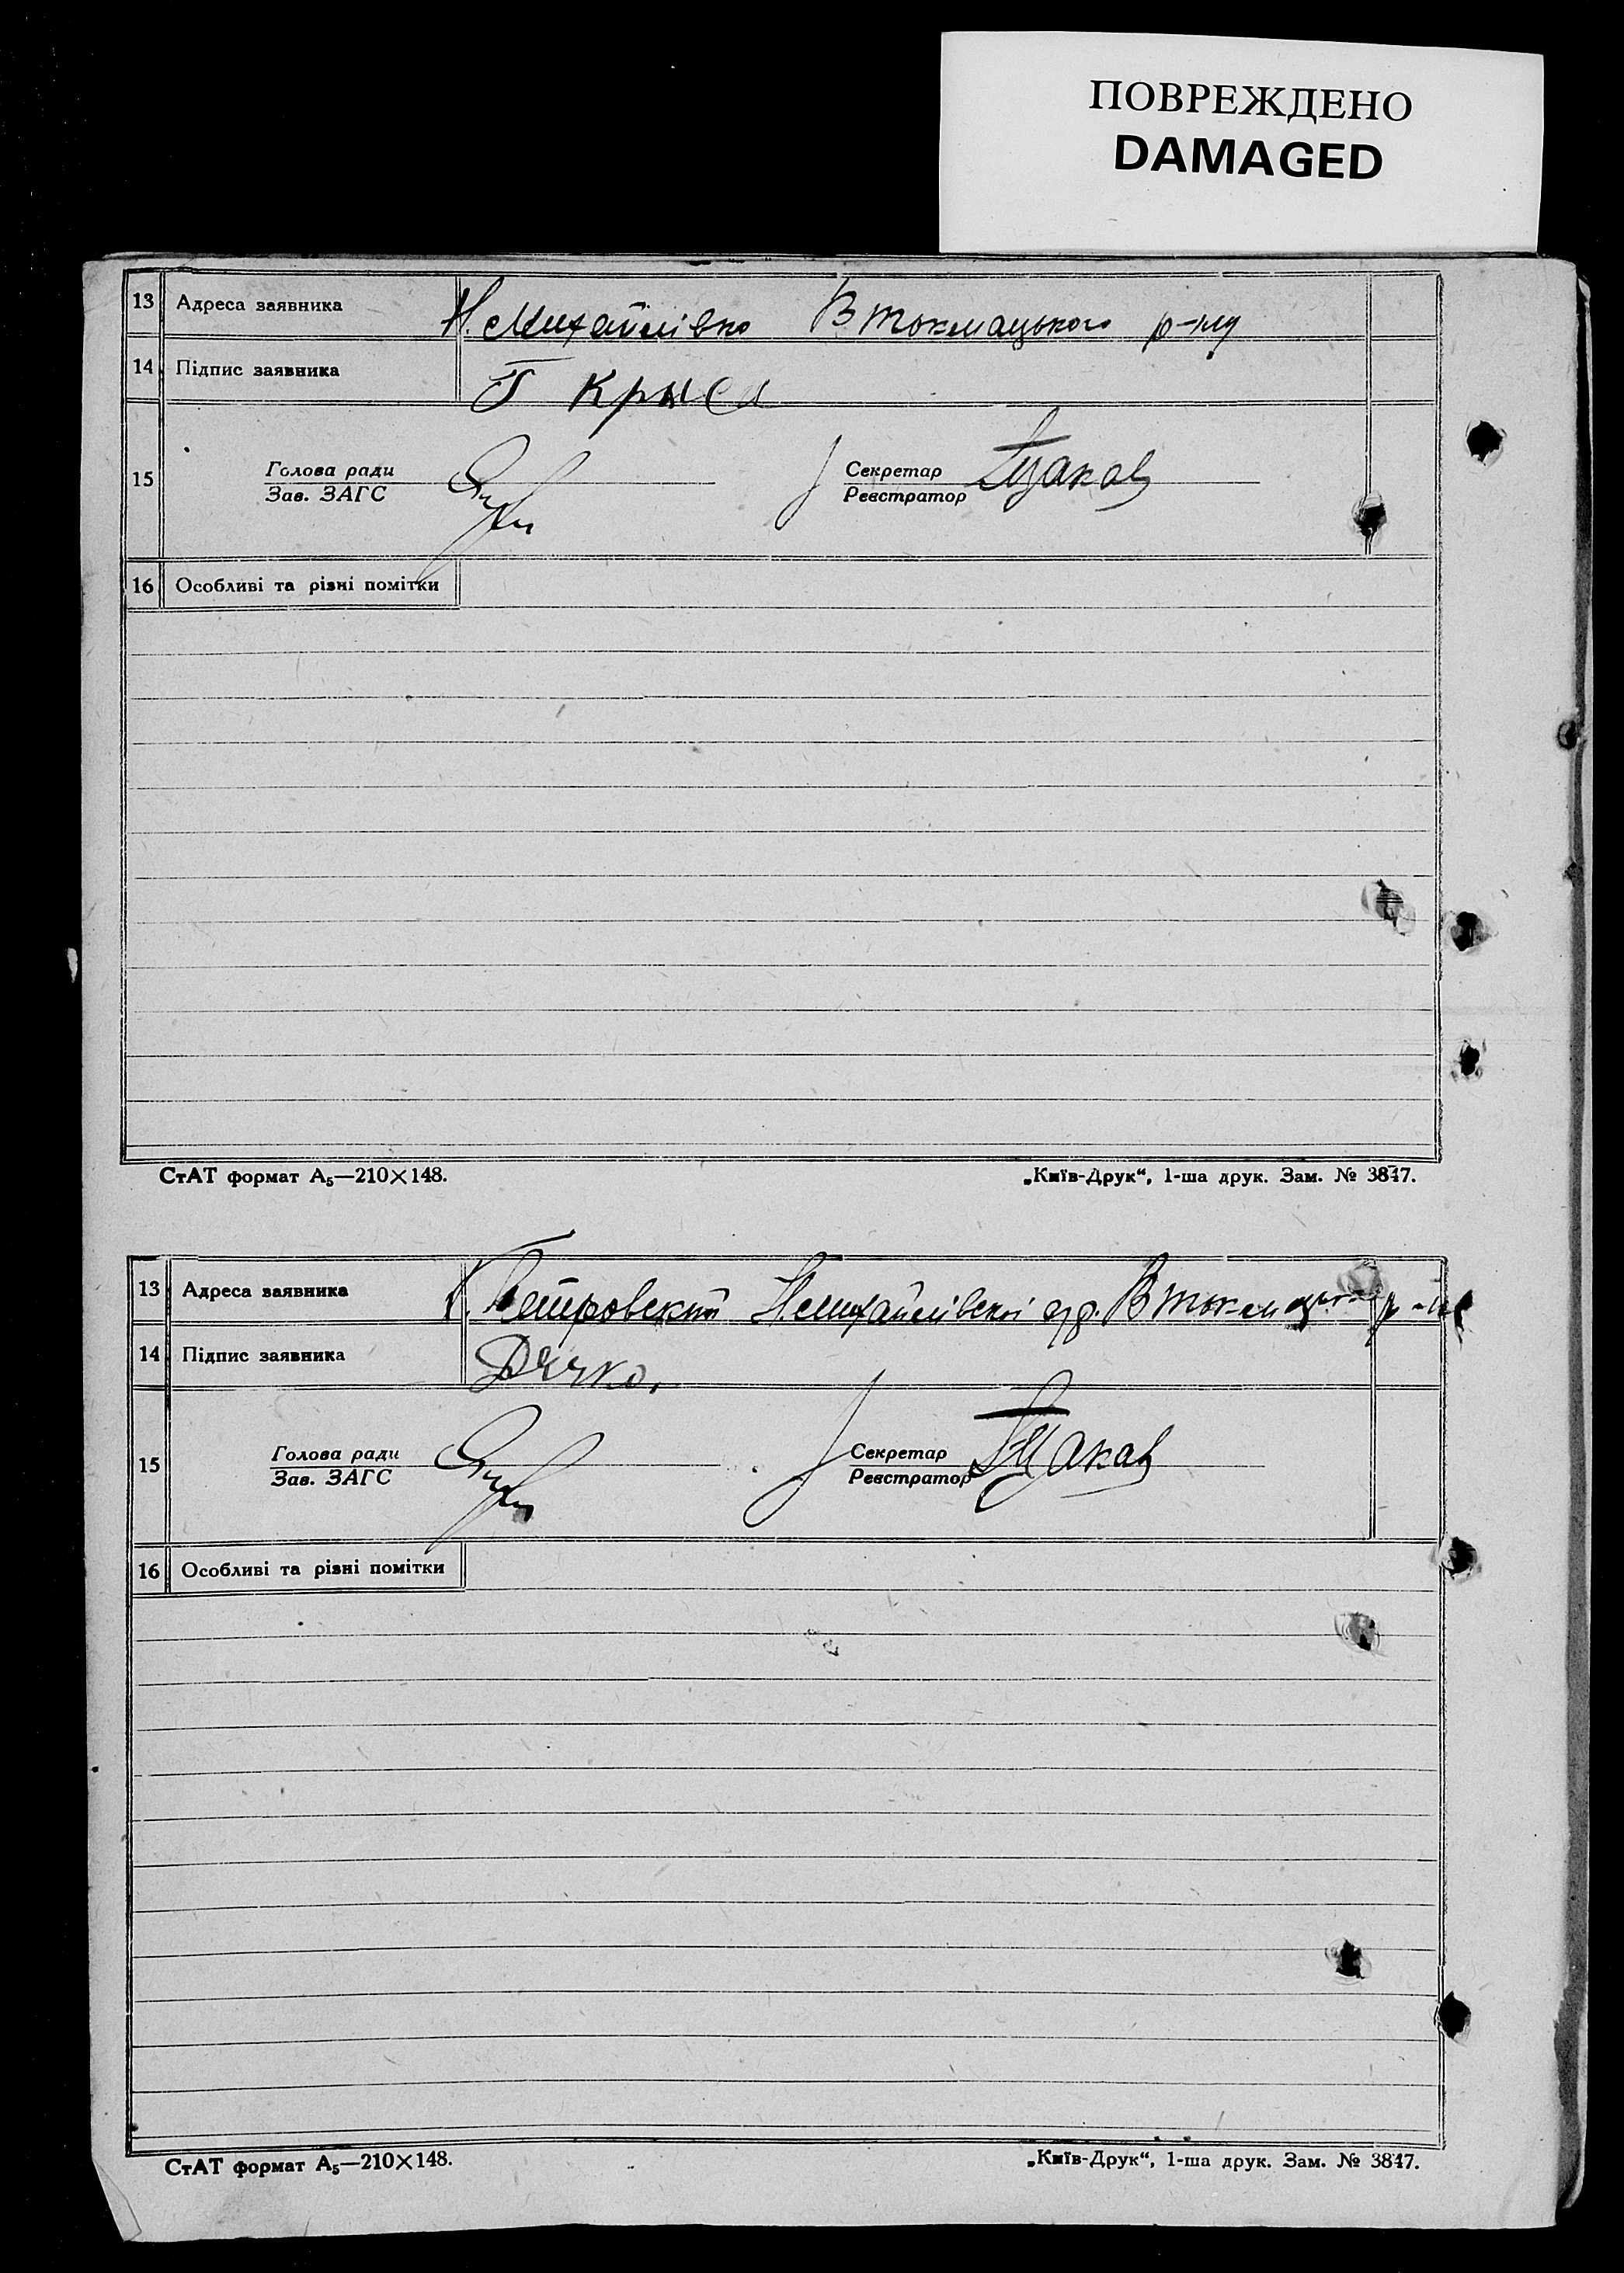 ПОВРЕЖДЕНО
DAMAGED
13 Адреса заявника Н. Михайлівка В Токмацького р-ну
14 Підпис заявника Г Крыса
15 Голова ради
Зав. ЗАГС
Секретар
Реєстратор
16 Особливі та різні помітки
СтАТ формат А₅—210×148. „Київ-Друк“, 1-ша друк. Зам. № 3847.
13 Адреса заявника Н. Михайлівскоі В Токмацьк р-ну
14 Підпис заявника Дячко.
15 Голова ради
Зав. ЗАГС
Секретар
Реєстратор
16 Особливі та різні помітки
СтАТ формат А₅—210×148. „Київ-Друк“, 1-ша друк. Зам. № 3847.